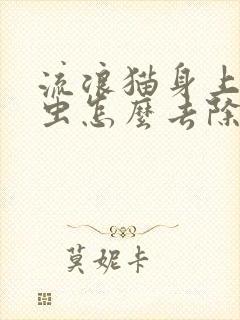 流浪猫身上
虫怎麼去除
莫妮卡